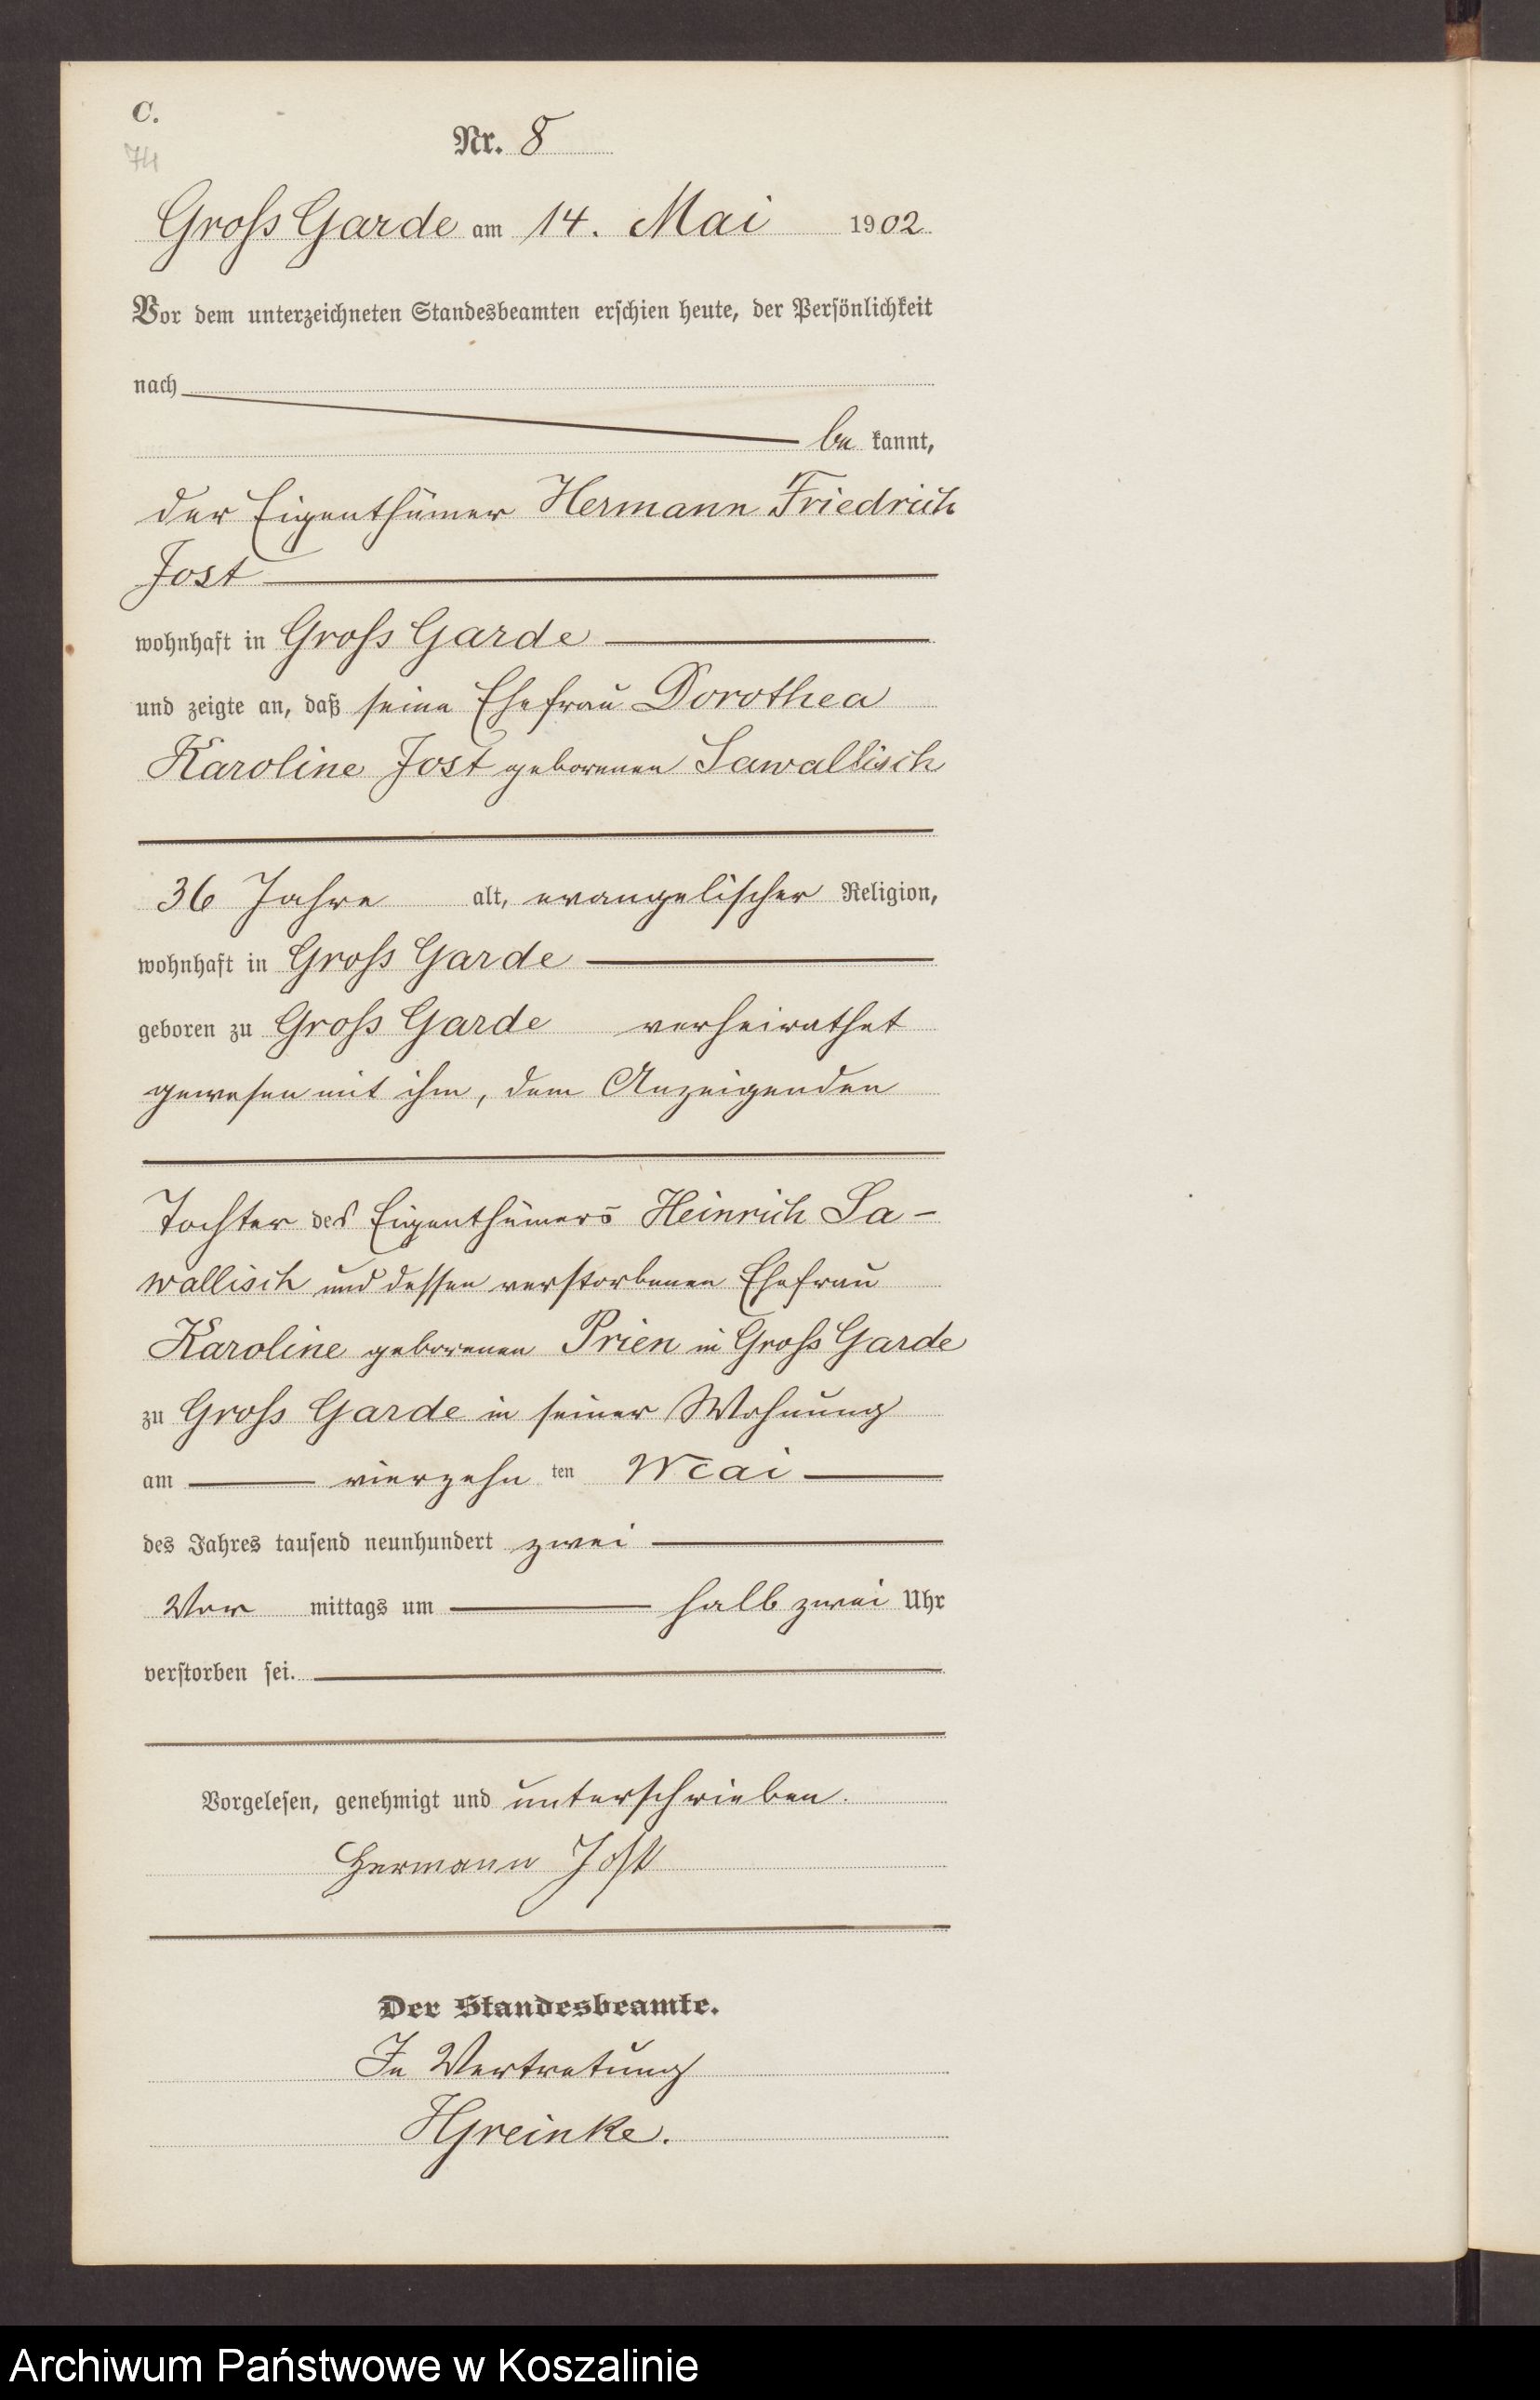 C.
74
Nr. 8
Gross Garde am 14. Mai 1902
Vor dem unterzeichneten Standesbeamten erschien heute, der Persönlichkeit
nach
be kannt,
der Eigenthümer Hermann Friedrich
Jost
wohnhaft in Gross Garde
und zeigte an, daß seine Ehefrau Dorothea
Karoline Jost geborenen Sawallisch
36 Jahre alt, evangelischer Religion,
wohnhaft in Gross Garde
geboren zu Gross Garde verheirathet
gewesen mit ihm, dem Anzeigenden
Tochter des Eigenthümers Heinrich Sa-
wallisch und dessen verstorbenen Ehefrau
Karoline geborenen Prien in Gross Garde
zu Gross Garde in seiner Wohnung
am vierzehn ten Mai
des Jahres tausend neunhundert zwei
Vor mittags um halb zwei Uhr
verstorben sei.
Vorgelesen, genehmigt und unterschrieben.
Hermann Jost
Der Standesbeamte.
In Vertretung
HGreinke.
Archiwum Państwowe w Koszalinie